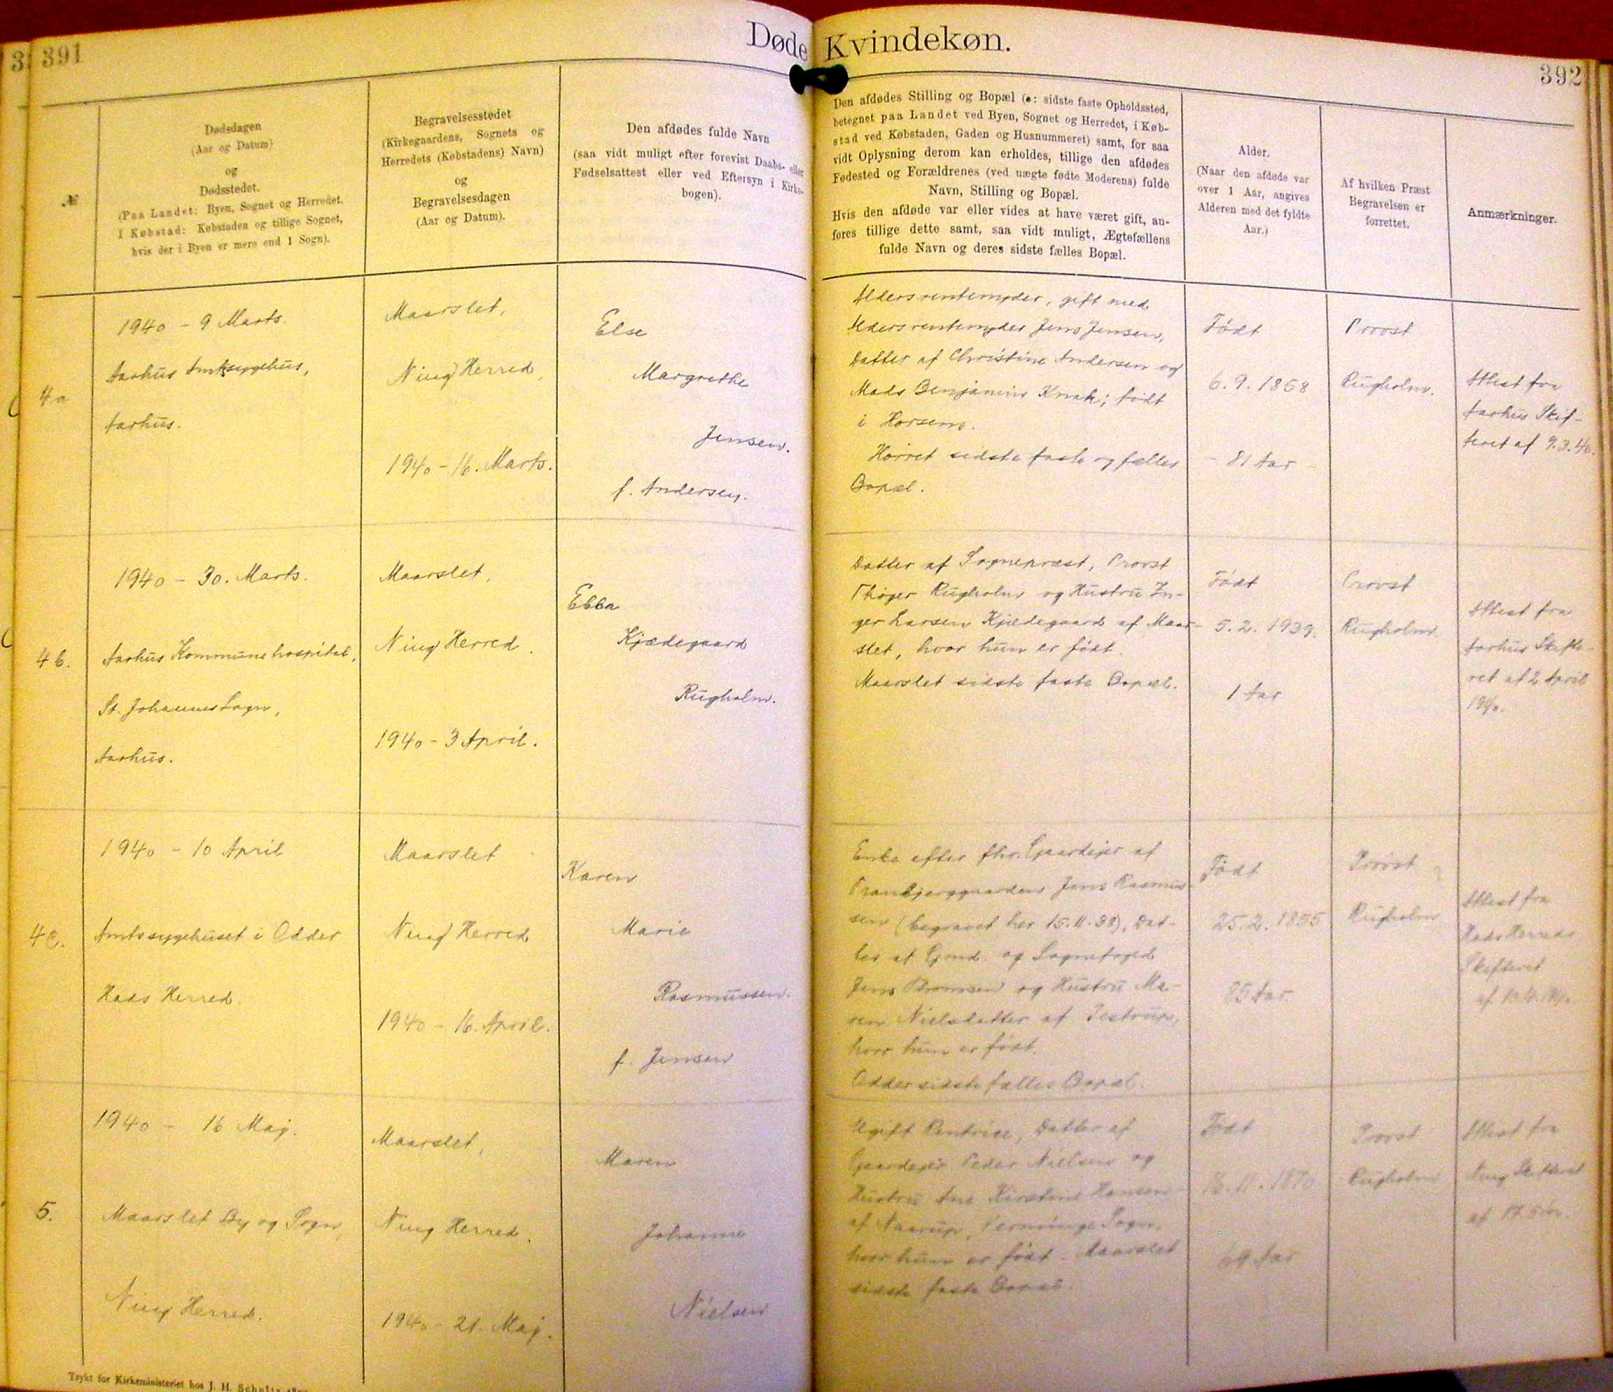 391
Døde
Kvindekøn.
392
№
Dødsdagen
(Aar og Datum)
og
Dødsstedet.
(Paa Landet: Byen, Sognet og Herredet.
I Købstad: Købstaden og tillige Sognet,
hvis der i Byen er mere end 1 Sogn).
Begravelsesstedet
(Kirkegaardens, Sognets og
Herredets (Købstadens) Navn)
og
Begravelsesdagen
(Aar og Datum).
Den afdødes fulde Navn
(saa vidt muligt efter forevist Daabs- eller
Fødselsattest eller ved Eftersyn i Kirke-
bogen).
Den afdødes Stilling og Bopæl (ɔ: sidste faste Opholdssted,
betegnet paa Landet ved Byen, Sognet og Herredet, i Køb-
stad ved Købstaden, Gaden og Husnummeret) samt, for saa
vidt Oplysning derom kan erholdes, tillige den afdødes
Fødested og Forældrenes (ved uægte fødte Moderens) fulde
Navn, Stilling og Bopæl.
Hvis den afdøde var eller vides at have været gift, an-
føres tillige dette samt, saa vidt muligt, Ægtefællens
fulde Navn og deres sidste fælles Bopæl.
Alder.
(Naar den afdøde var
over 1 Aar, angives
Alderen med det fyldte
Aar.)
Af hvilken Præst
Begravelsen er
forrettet.
Anmærkninger.
4a
1940 - 9 Marts.
Aarhus Amtssygehus,
Aarhus.
Maarslet,
Ning Herred,
1940 - 16. Marts.
Else
Margrethe
Jensen.
f. Andersen.
Aldersrentenyder, gift med
Aldersrentenyder Jens Jensen,
Datter af Christine Andersen og
Mads Benjamin Knak; født
i Horsens.
Hørret sidste faste og fælles
Bopæl.
Født
6. 9. 1858
- 81 Aar -
Provst
Rugholm.
Attest fra
Aarhus Skif-
teret af 9.3.40.
4b.
1940 - 30. Marts.
Aarhus Kommunehospital,
St. Johannes Sogn,
Aarhus.
Maarslet,
Ning Herred.
1940 - 3 April.
Ebba
Kjædegaard
Rugholm.
Datter af Sognepræst, Provst
Thøger Rugholm og Hustru In-
ger Larsen Kjædegaard af Maar-
slet, hvor hun er født.
Maarslet sidste faste Bopæl.
Født
5. 2. 1939.
1 Aar
Provst
Rugholm
Attest fra
Aarhus Skifte-
ret af 2 April
1940.
4c.
1940 - 10 April
Amtssygehuset i Odder
Hads Herred.
Maarslet
Ning Herred
1940 - 16. April.
Karen
Marie
Rasmussen.
f. Jensen
Enke efter fhv. Gaardejer af
Tranbjerggaarden Jens Rasmus-
sen (begravet her 15.11.38), Dat-
ter af Gmd. og Sognefoged
Jens og Hustru Ma-
ren Nielsdatter af Testrup,
hvor hun er født.
Odder sidste fælles Bopæl.
Født
25. 2. 1855
85 Aar
Provst
Rugholm
Attest fra
Hads Herreds
Skifteret
af
5.
1940 - 16 Maj.
Maarslet By og Sogn,
Ning Herred.
Maarslet,
Ning Herred.
1940 - 21. Maj.
Maren
Johanne
Nielsen
Ugift Rentrice, Datter af
Gaardejer Peder Nielsen og
Hustru Ane Kirstine Hansen
af Naarup, Sogn,
hvor hun er født. Maarslet
sidste faste Bopæl.
Født
16. 11. 1870
69 Aar
Provst
Rugholm
Attest fra
Ning Skifteret
af
Trykt for Kirkeministeriet hos J. H. Schultz